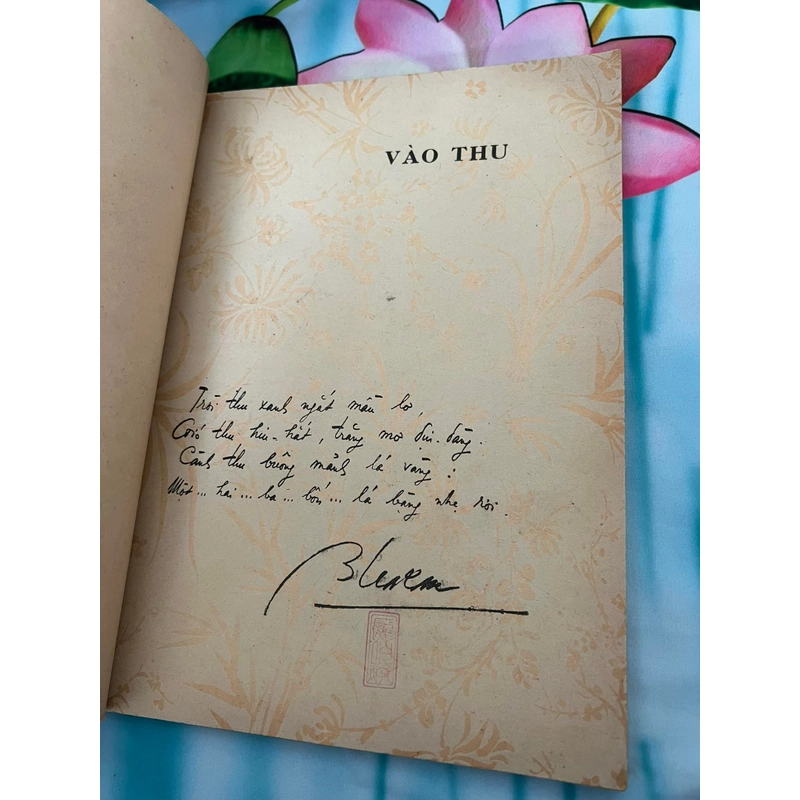 VÀO THU
Trời thu xanh ngát màu lơ,
Gió thu hiu-hắt, trăng mơ dịu-dàng.
Cành thu buông mảnh lá vàng:
Một... hai... ba... bốn... lá bàng nhẹ rơi.